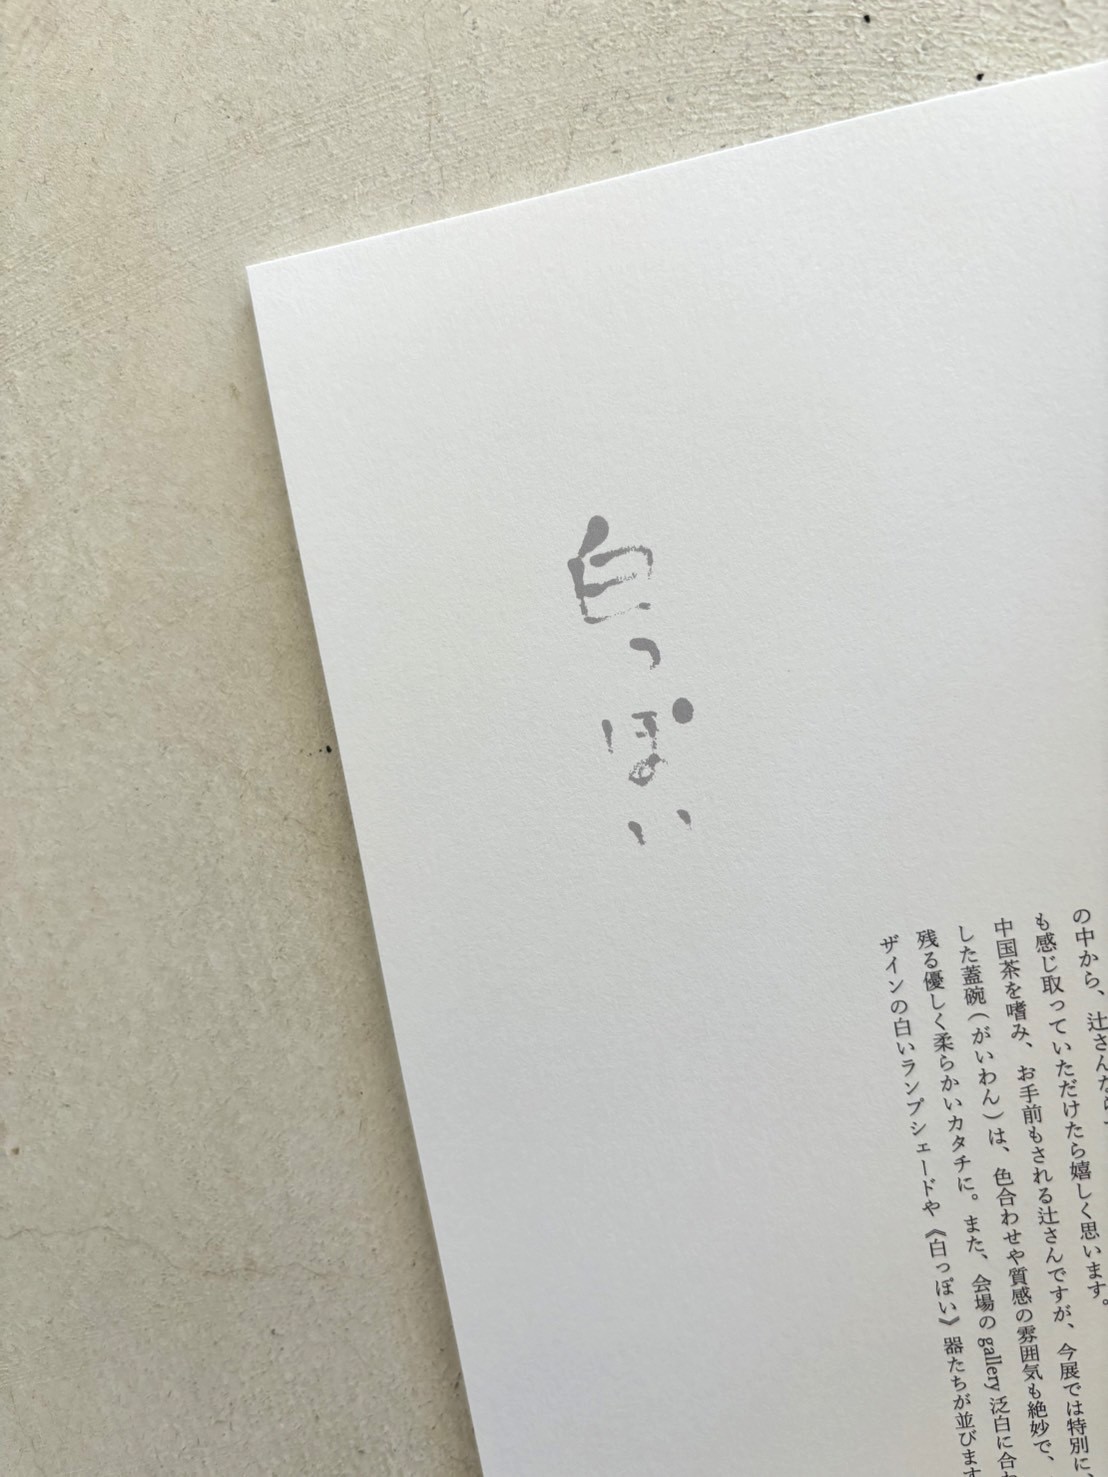 白っぽい
の中から、辻さんなら
も感じ取っていただけたら嬉しく思います。
中国茶を嗜み、お手前もされる辻さんですが、今展では特別に、
した蓋碗(がいわん)は、色合わせや質感の雰囲気も絶妙で、
残る優しく柔らかいカタチに。また、会場のgallery泛白に合わ
ザインの白いランプシェードや《白っぽい》器たちが並びます